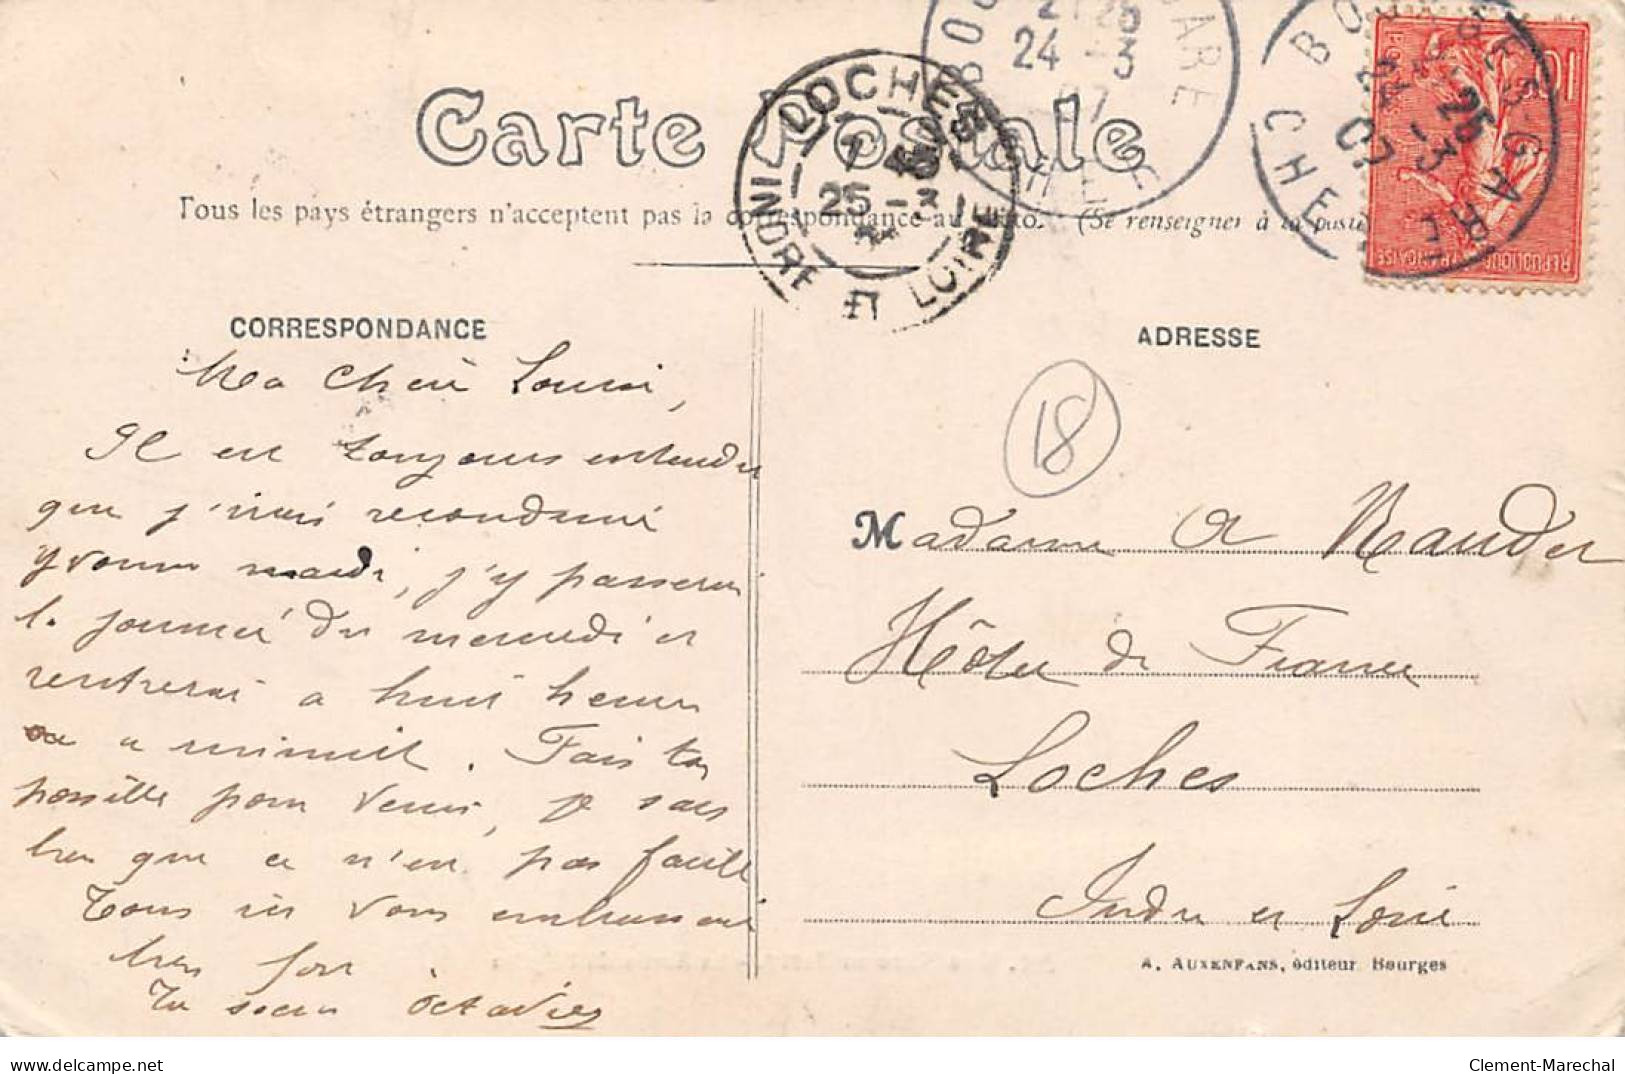 Carte Postale
Tous les pays étrangers n'acceptent pas la correspondance au recto. (Se renseigner à la poste
BOURGES GARE
CHER
24 -3
07
LOCHES
25 -3
INDRE ET LOIRE
BOURGES GARE
CHER
24 -3
07
10
POSTES
REPUBLIQUE FRANÇAISE
CORRESPONDANCE
Ma chère Louise,
Il est toujours entendu
que j'irais reconduire
Yvonne mardi, j'y passerai
la journée du mercredi et
rentrerai à huit heures
ou à minuit. Fais ton
possible pour venir, je sais
bien que ce n'est pas facile
Tous ici vous embrassent
bien fort
Ta soeur Octavie
ADRESSE
18
Madame A
Hôtel de France
Loches
Indre et Loire
A. AUXENFANS, éditeur Bourges
delcampe.net
Clement-Marechal